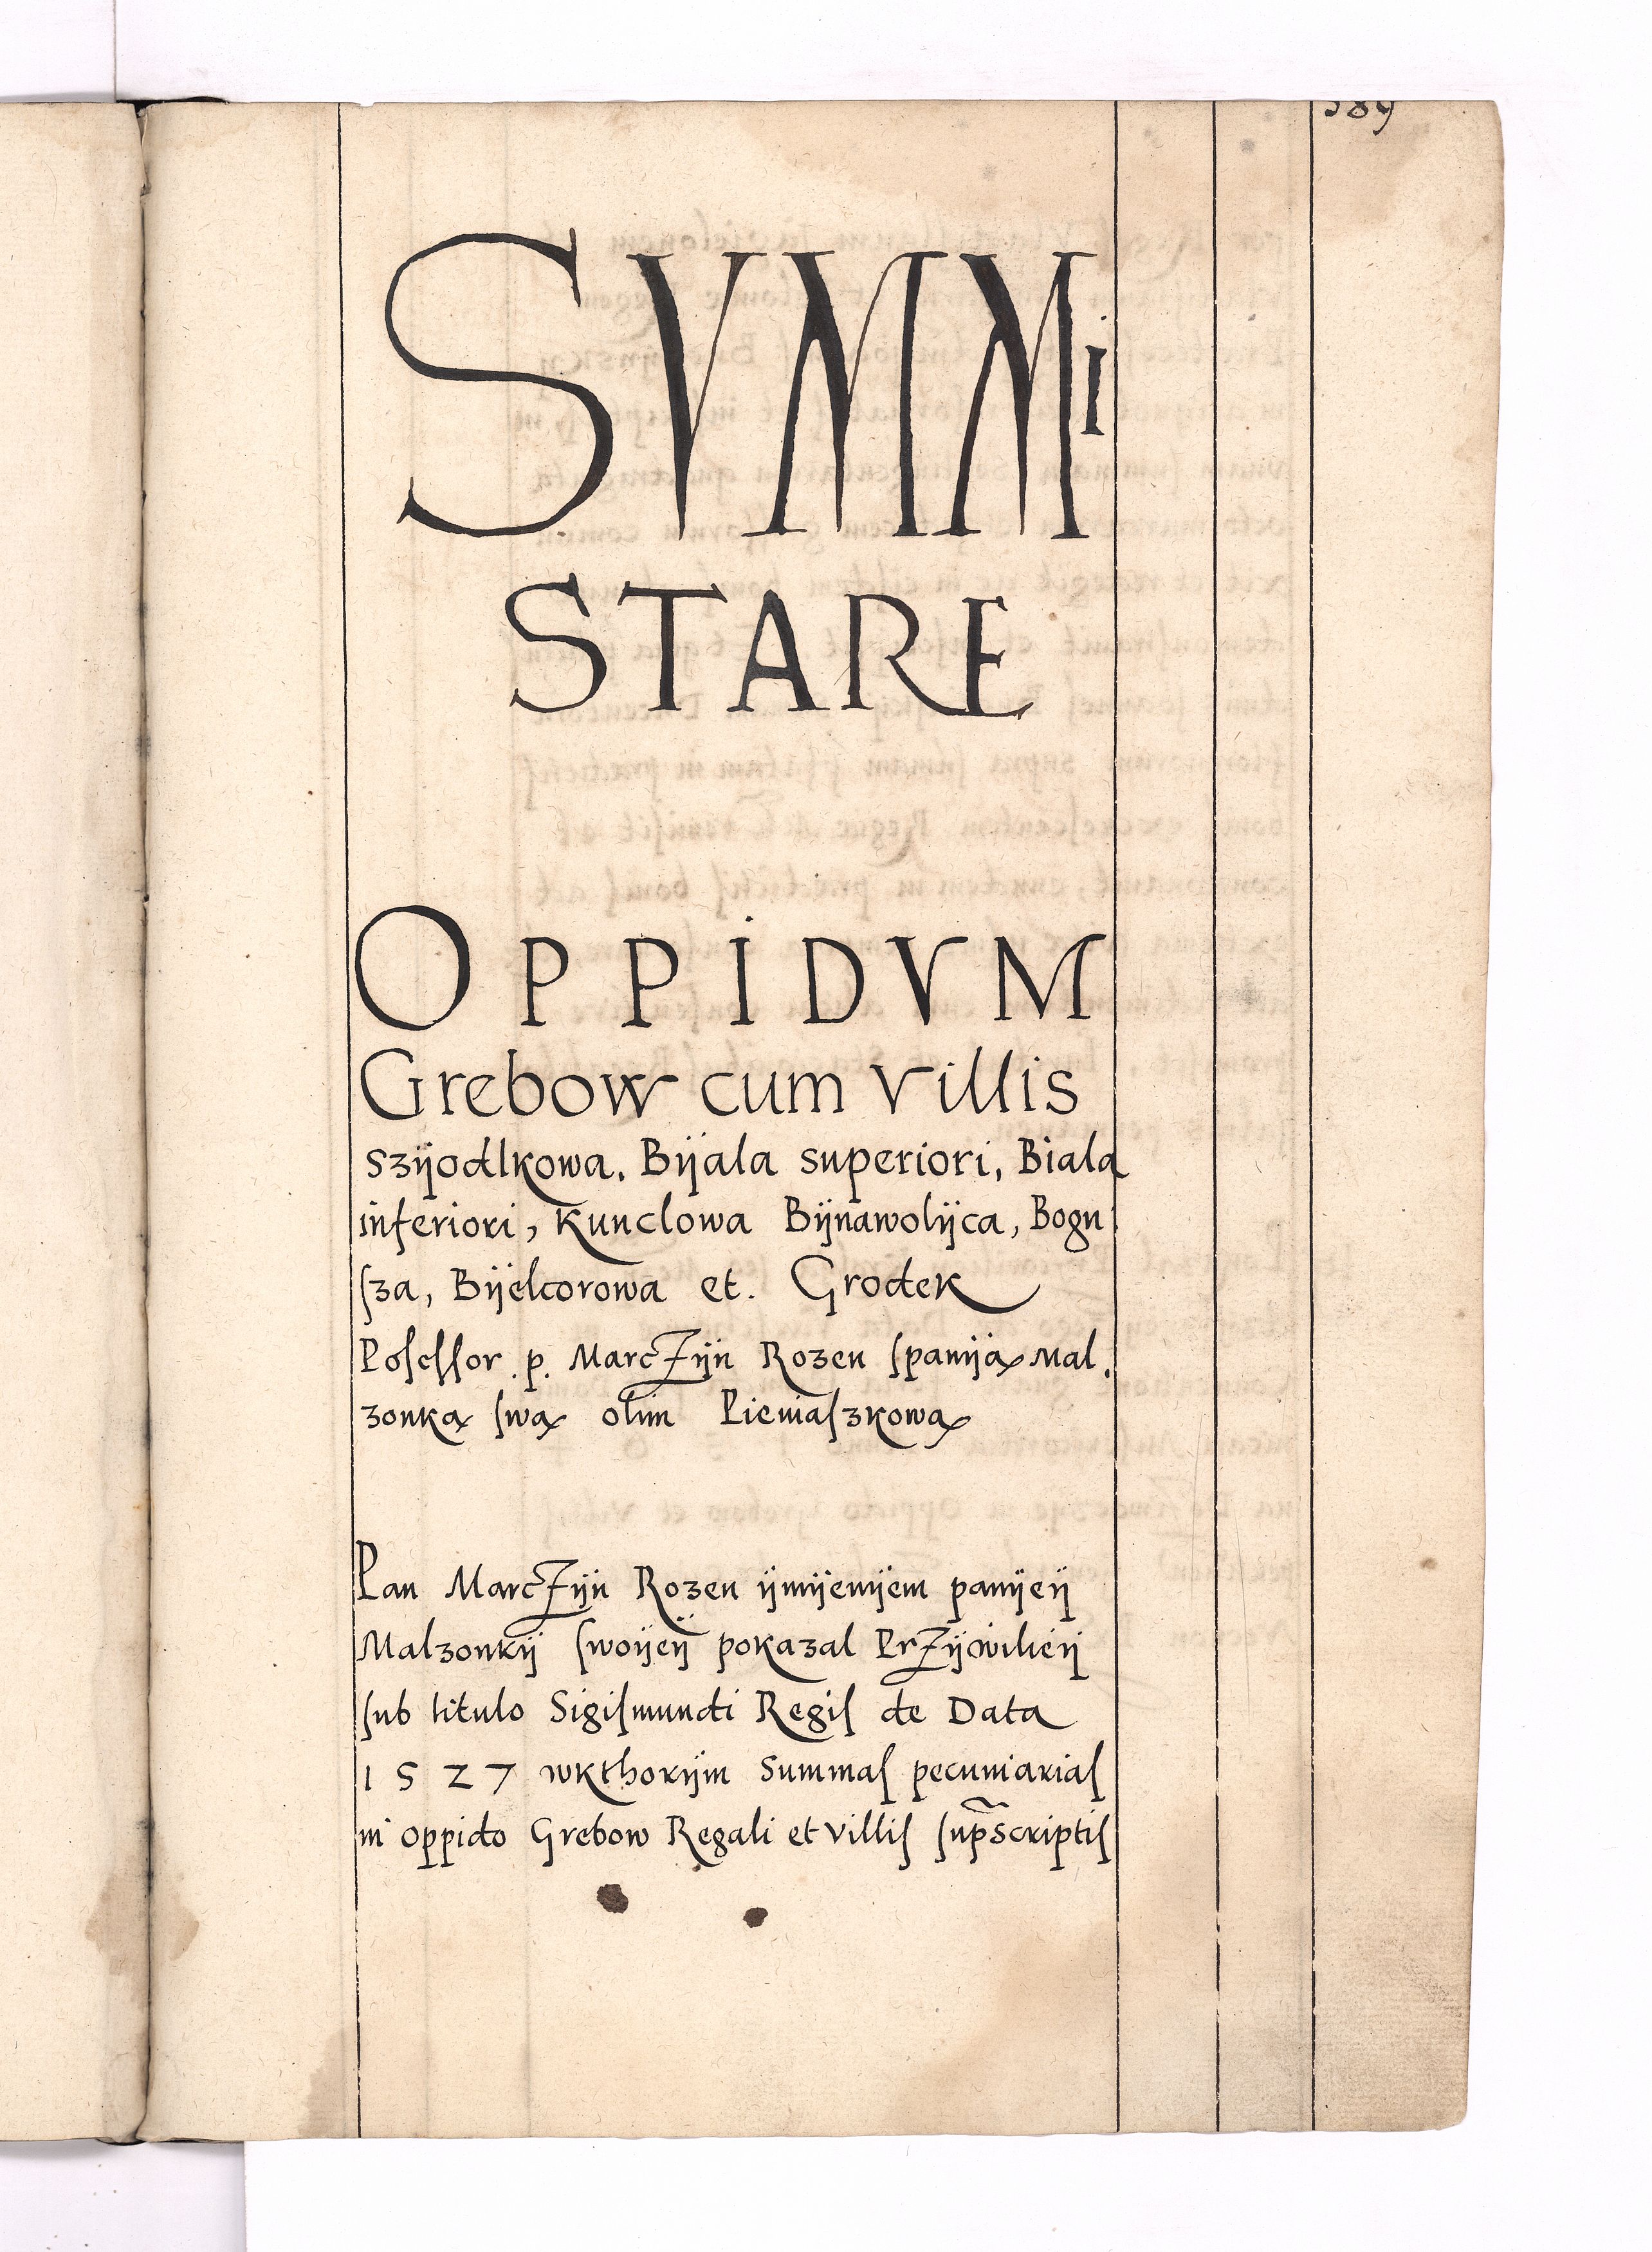 589
SVMMi
STARE
OPPIDVM
Grebow cum villis
szÿodlkowa. Bÿala superiori, Biala
inferiori, Kunclowa Bÿnawolÿca, Bogu
ſza, Bÿelcorowa et. Grodek
Poſeſſor .p. Marczÿn Rozen ſpanÿą Mal.
zonką ſwą olim Pieniaſzkową
Pan Marczÿn Rozen ÿmÿenÿem panÿeÿ
Malzonkÿ ſwoÿeÿ pokazal Przÿwileÿ
ſub titulo Sigiſmundi Regiſ de Data
1527 wkthorÿm Summaſ pecuniariaſ
in oppido Grebow Regali et villiſ ſup̃scriptiſ